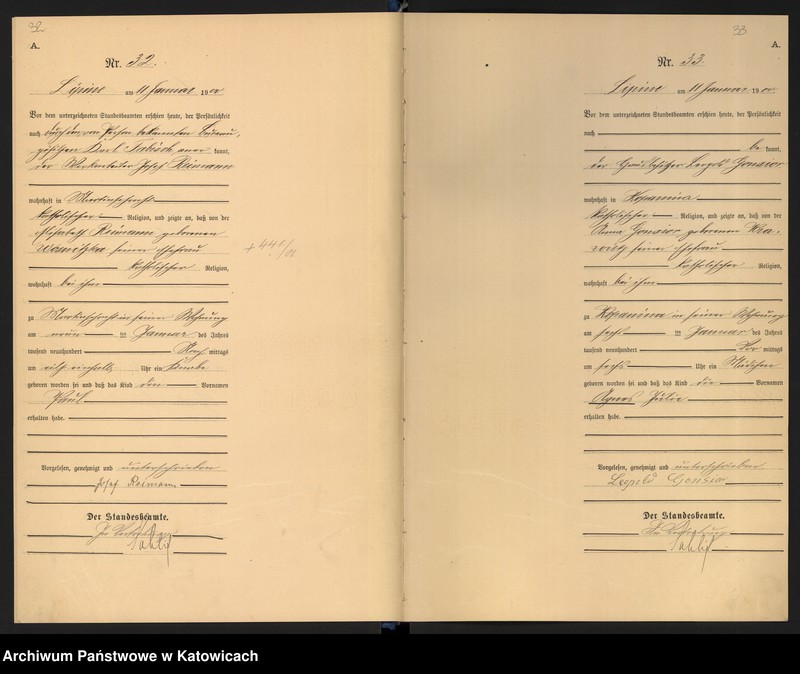 32
A.
Nr. 32.
Lipine am 11 Januar 1900
Vor dem unterzeichneten Standesbeamten erschien heute, der Persönlichkeit
nach durch den von Person bekannten
Karl kannt,
der Josef Reimann
wohnhaft in
katholischer Religion, und zeigte an, daß von der
Elisabeth Reimann geborenen
seiner Ehefrau
katholischer Religion,
wohnhaft bei ihm
zu in seiner Wohnung
am neun ten Januar des Jahres
tausend neunhundert Nach mittags
um elf einhalb Uhr ein Knabe
geboren worden sei und daß das Kind den Vornamen
Paul
erhalten habe.
Vorgelesen, genehmigt und unterschrieben
Josef Reimann
Der Standesbeamte.
In Vertretung
+ 441/
33
A.
Nr. 33.
Lipine am 11 Januar 1900.
Vor dem unterzeichneten Standesbeamten erschien heute, der Persönlichkeit
nach
be kannt,
der Leopold Gonsior
wohnhaft in Kopanina
katholischer Religion, und zeigte an, daß von der
Anna Gonsior geborenen
seiner Ehefrau
katholischer Religion,
wohnhaft bei ihm
zu Kopanina in seiner Wohnung
am sechs ten Januar des Jahres
tausend neunhundert Vor mittags
um sechs Uhr ein Mädchen
geboren worden sei und daß das Kind die Vornamen
Agnes Julie
erhalten habe.
Vorgelesen, genehmigt und unterschrieben
Leopold Gonsior
Der Standesbeamte.
In Vertretung
Archiwum Państwowe w Katowicach